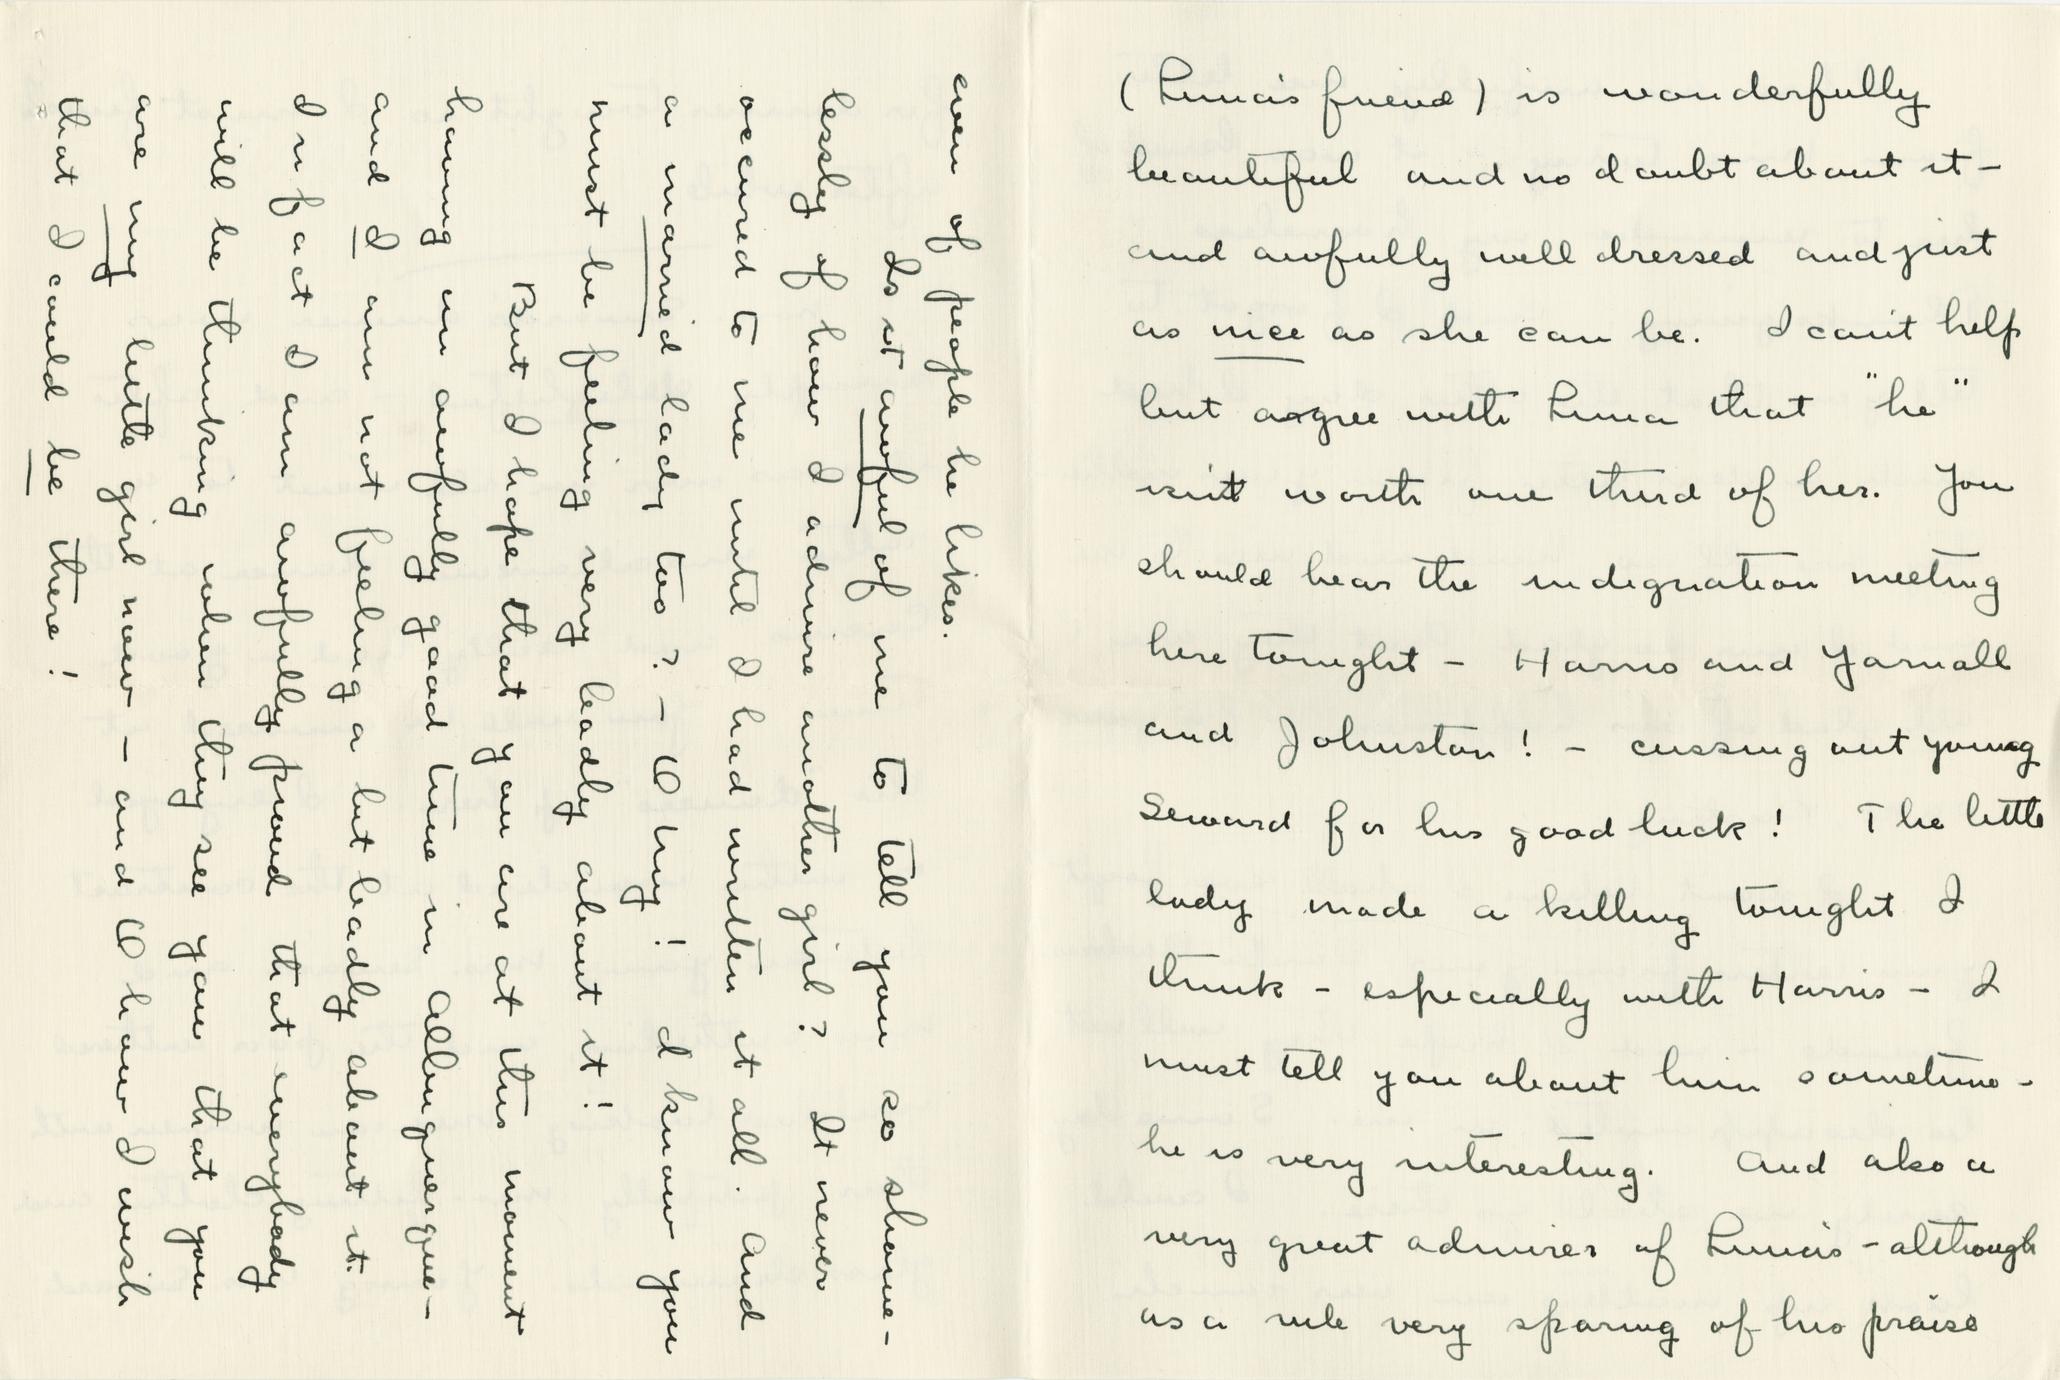 (Luna's friend) is wonderfully
beautiful and no doubt about it –
and awfully well dressed and just
as nice as she can be. I can't help
but agree with Luna that "he"
isn't worth one third of her. You
should hear the indignation meeting
here tonight – Harris and Yarnall
and Johnston! – cussing out young
Seward for his good luck! The little
lady made a killing tonight I
think – especially with Harris – I
must tell you about him sometime –
he is very interesting. And also a
very great admirer of Luna's – although
as a rule very sparing of his praise
even of people he likes.
Is it awful of me to tell you so shame-
lessly of how I admire another girl? It never
occured to me until I had written it all. And
a married lady too? – O my! I know you
must be feeling very badly about it!
But I hope that you are at this moment
having an awfully good time in Albuquerque –
and I am not feeling a bit badly about it.
In fact I am awfully proud that everybody
will be thinking when they see you that you
are my little girl now – and O how I wish
that I could be there!